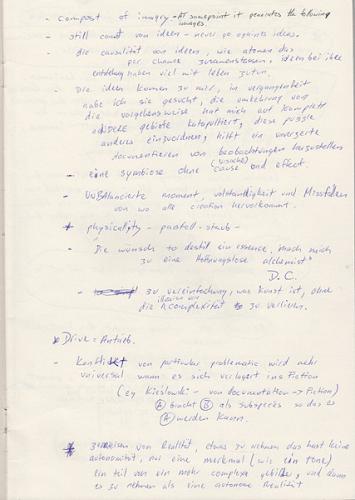 - compost of imagery - AT somepoint it generates the following images.
- still count von ideen - never go against ideas.
- die causalität von ideen, wie atomen das
per chance zusamenstossen, ideen bei ihre
entstehung haben viel mit leben zutun.
- Die ideen kommen zu mir, in vergangenheit
habe ich sie gesucht, die umkehrung von
die vorgehensweise hat mich auf komplett
andere gebiete katapultiert, diese puzzle
anders einzuordnen, hilft ein unverzerrte
documentieren von beobachtungen herzustellen
- eine symbiose ohne (usual) cause and effect.
- UNBAlancierte moment, vollständigkeit und
von wo alle creation hervorkommt.
* physicality - pastell-staub -
- Die wunsch to destil ein essence, mach mich
zu eine Hoffnungslose alchemist"
D.C.
- zu vereinfachung, was Kunst ist, ohne
die illusion von complexiteit zu verlieren.
* Drive = Antrieb.
- Konflikt von particular problematic wird mehr
universal wann es sich verlagert ins Fiction
(zy Kieslowski - von Documentation -> Fiction)
(A) braucht (B) als subspecies so das es
(A) werden kann.
* von Realität, etwas zu nehmen das hast keine
autonomität, nur eine merkmal (wie ein tone)
ein teil von ein mehr complexe gebilde, und dann
es zu nehmen als eine autonome Realität